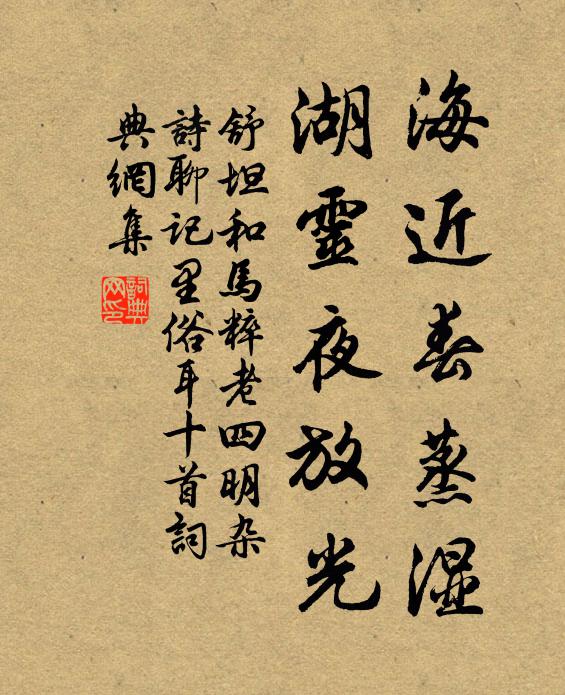 海近春蒸濕
湖靈夜放光
舒坦和馬粹老四明杂
詩聊記里俗耳十首詞
典網集
詞典
网印